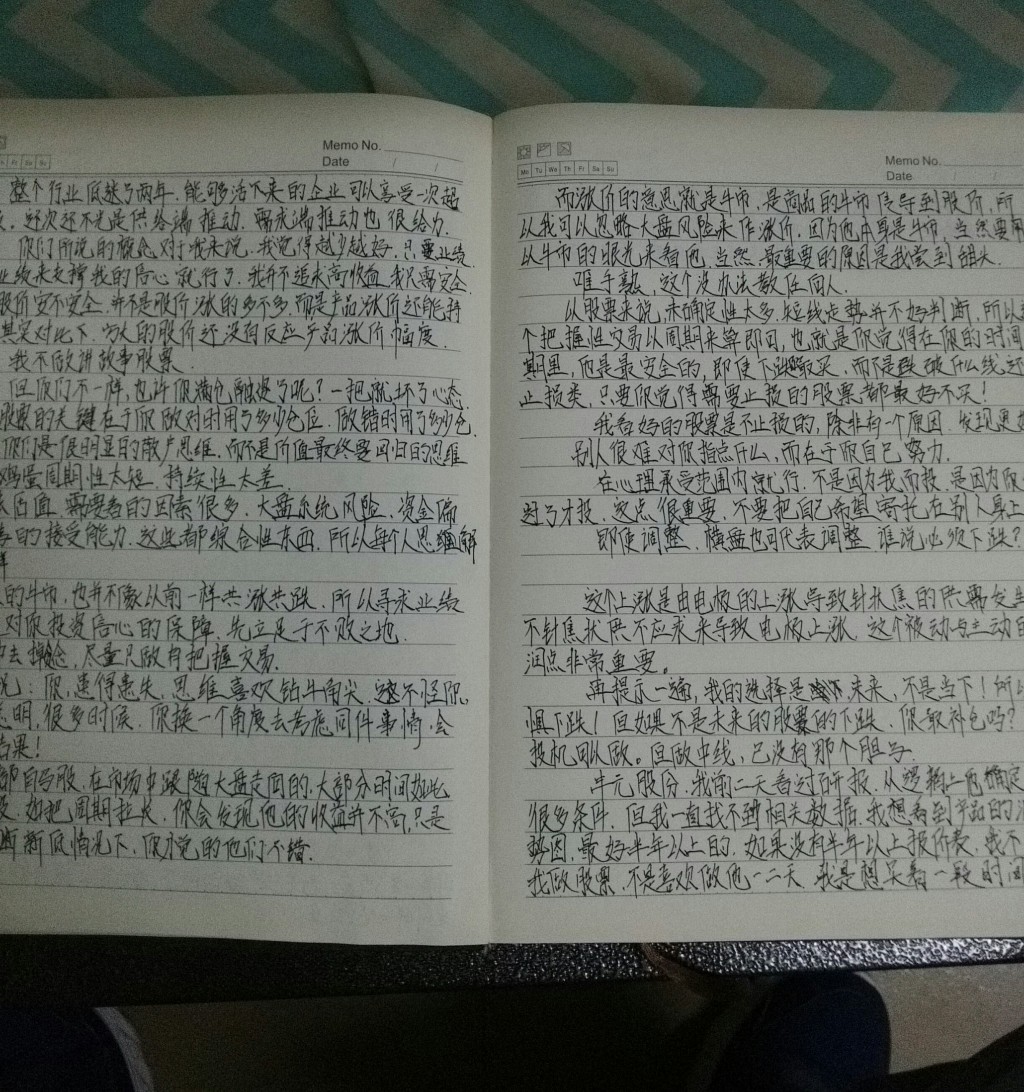 Memo No.
Date / /
Fr Sa Su
整个行业低迷了两年.能够活下来的企业可以享受一次超
这次还不光是供给端推动.需求端推动也很给力.
你们所说的概念对于我来说.我觉得越少越好.只要业绩
业绩来支撑我的信心就行了.我并不追求高收益.我只需安全.
股价安不安全.并不是股价涨的多不多.而是产品涨价还能持
其实对比下.的股价还没有反应产品涨价幅度.
我不做讲故事股票.
但你们不一样.也许你满仓融资了呢?一把就坏了心态.
股票的关键在于你做对时用了多少仓位.做错时用了多少仓.
你们是很明显的散户思维.而不是价值最终要回归的思维
鸡蛋周期性太短.持续性太差.
估值.需要看的因素很多.大盘系统风险.资金偏
的接受能力.这些都综合性东西.所以每个人思维解
的牛市.也并不像以前一样共涨共跌.所以寻求业绩
对你投资信心的保障.先立足于不败之地.
去概念.尽量只做有把握交易.
说:你.患得患失.思维喜欢钻牛角尖.这不怪你.
明.很多时候.你换一个角度去考虑同件事情.会
结果!
即自与股.在市场中跟随大盘走回的.大部分时间如此
如把周期拉长.你会发现他的收益并不高.只是
断新低情况下.你才觉的他们不错.
Memo No.
Date / /
Mo Tu We Th Fr Sa Su
而涨价的意思就是牛市.是商品的牛市传导到股价.所
以我可以忽略大盘风险来作涨价.因为他本身是牛市.当然要用
从牛市的眼光来看他.当然.最重要的原因是我尝到甜头.
唯手熟.这个没办法教任何人.
从股票来说.未确定性太多.短线走势并不好判断.所以
个把握性交易以周期来算即可.也就是你觉得在你的时间
期里.他是最安全的.即使下跌敢买.而不是跌破什么线还
止损类.只要你觉得需要止损的股票都最好不买!
我看好的股票是不止损的.除非有一个原因.发现更
别人很难对你指点什么.而在于你自己努力.
在心理承受范围内就行.不是因为我而投.是因为你
过了才投.这点很重要.不要把自己希望寄托在别人身上
即使调整.横盘也可代表调整.谁说必须下跌?
这个上涨是由电极的上涨导致针状焦的供需发生
不针焦状供不应求来导致电极上涨.这个被动与主动
润点非常重要。
再提示一遍,我的选择是未来.不是当下!所以
惧下跌!但如果不是未来的股票的下跌.你敢补仓吗?
投机可以做。但做中线.已没有那个胆与.
丰元股份.我前二天看过研报.从逻辑上他确定
很多条件.但我一直找不到相关数据.我想看到产品的
势图.最好半年以上的.如果没有半年以上报价表.我不
我做股票.不是喜欢做他一二天.我是想买着一段时间